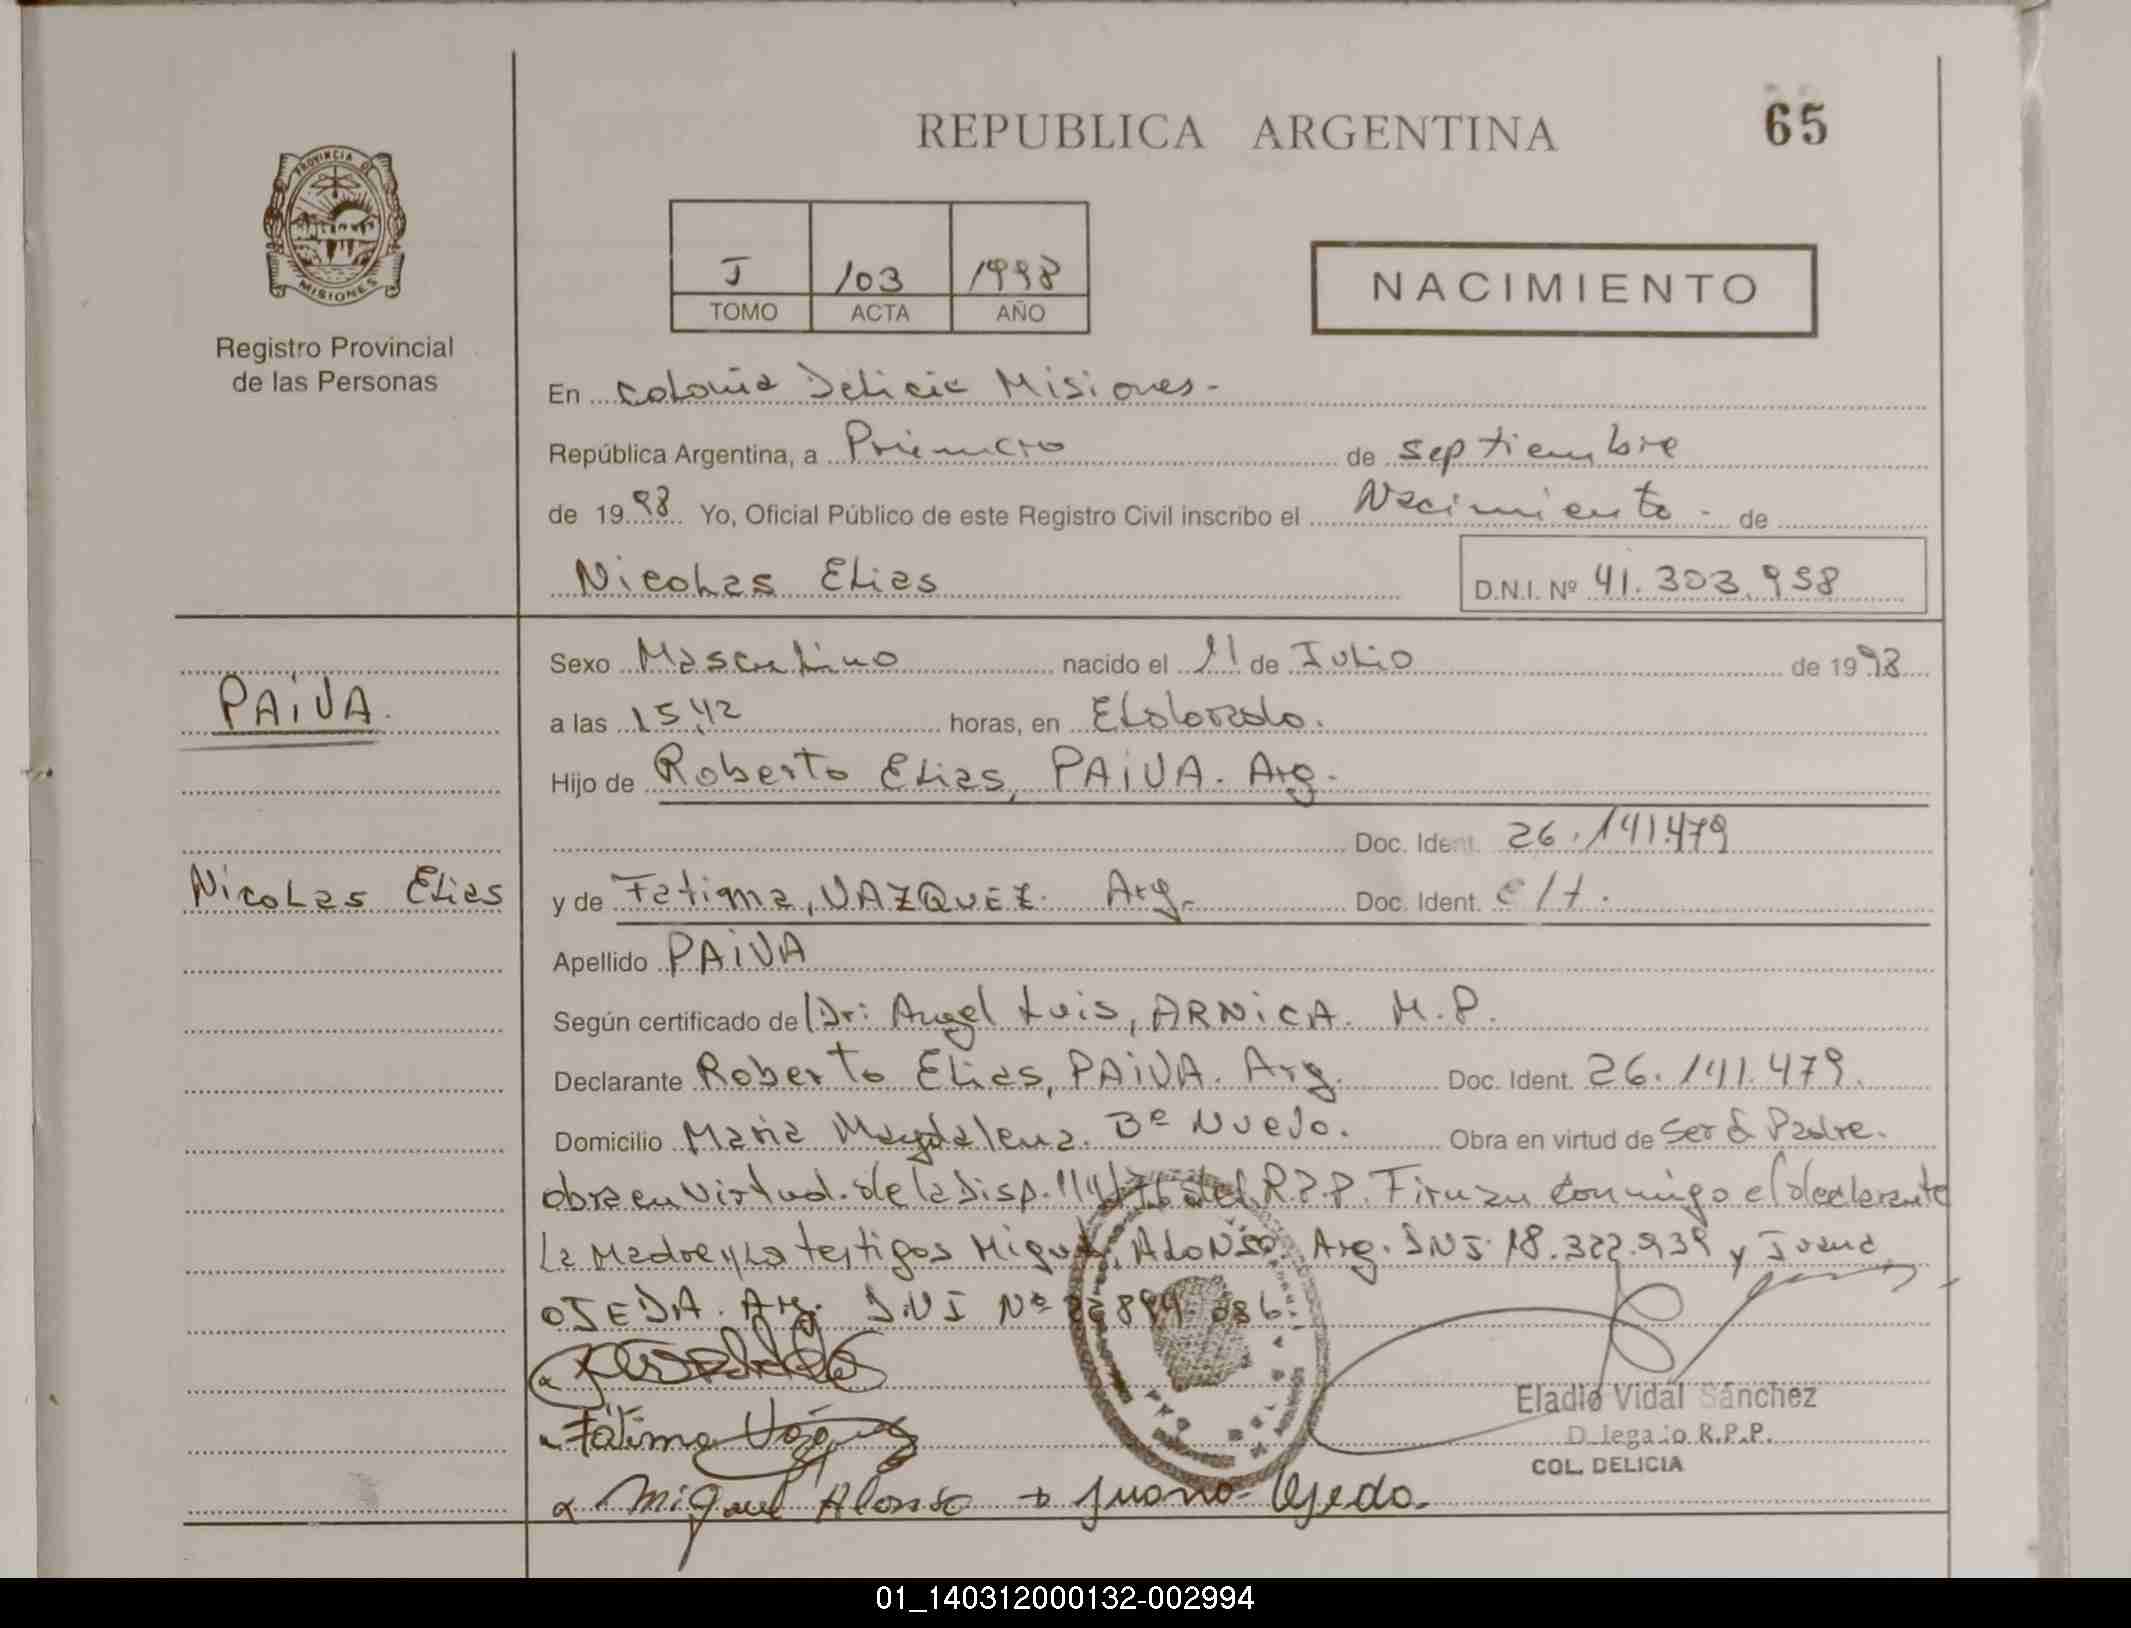 REPUBLICA ARGENTINA
65
PROVINCIA DE
MISIONES
Registro Provincial
de las Personas
I 103 1998
TOMO ACTA AÑO
NACIMIENTO
En Colonia Delicia Misiones-
República Argentina, a Primero de septiembre
de 1998 Yo, Oficial Público de este Registro Civil inscribo el Nacimiento - de
Nicolas Elias D.N.I. Nº 41.303.958
Sexo Masculino nacido el 11 de Julio de 1998
PAIVA.
a las 15,42 horas, en Eldorado.
Hijo de Roberto Elias, PAIVA. Arg.
Doc. Ident. 26.141.479
Nicolas Elias
y de Fatima, VAZQUEZ. Arg. Doc. Ident.
Apellido PAIVA
Según certificado de Dr: Angel Luis, ARNICA. M.P.
Declarante Roberto Elias, PAIVA. Arg. Doc. Ident. 26.141.479.
Domicilio Maria Magdalena. Bº Nuevo. Obra en virtud de ser el Padre.
obra en virtud. de la Disp. del R.P.P. Firman conmigo el declarante
La Madre y Lo testigos Miguel, ALONSO. Arg. DNI 18.322.939 y Juana
OJEDA. Arg. DNI Nº
Fátima
Miguel Alonso Juana Ojeda.
Eladio Vidal Sánchez
Delegado R.P.P.
COL. DELICIA
01_140312000132-002994